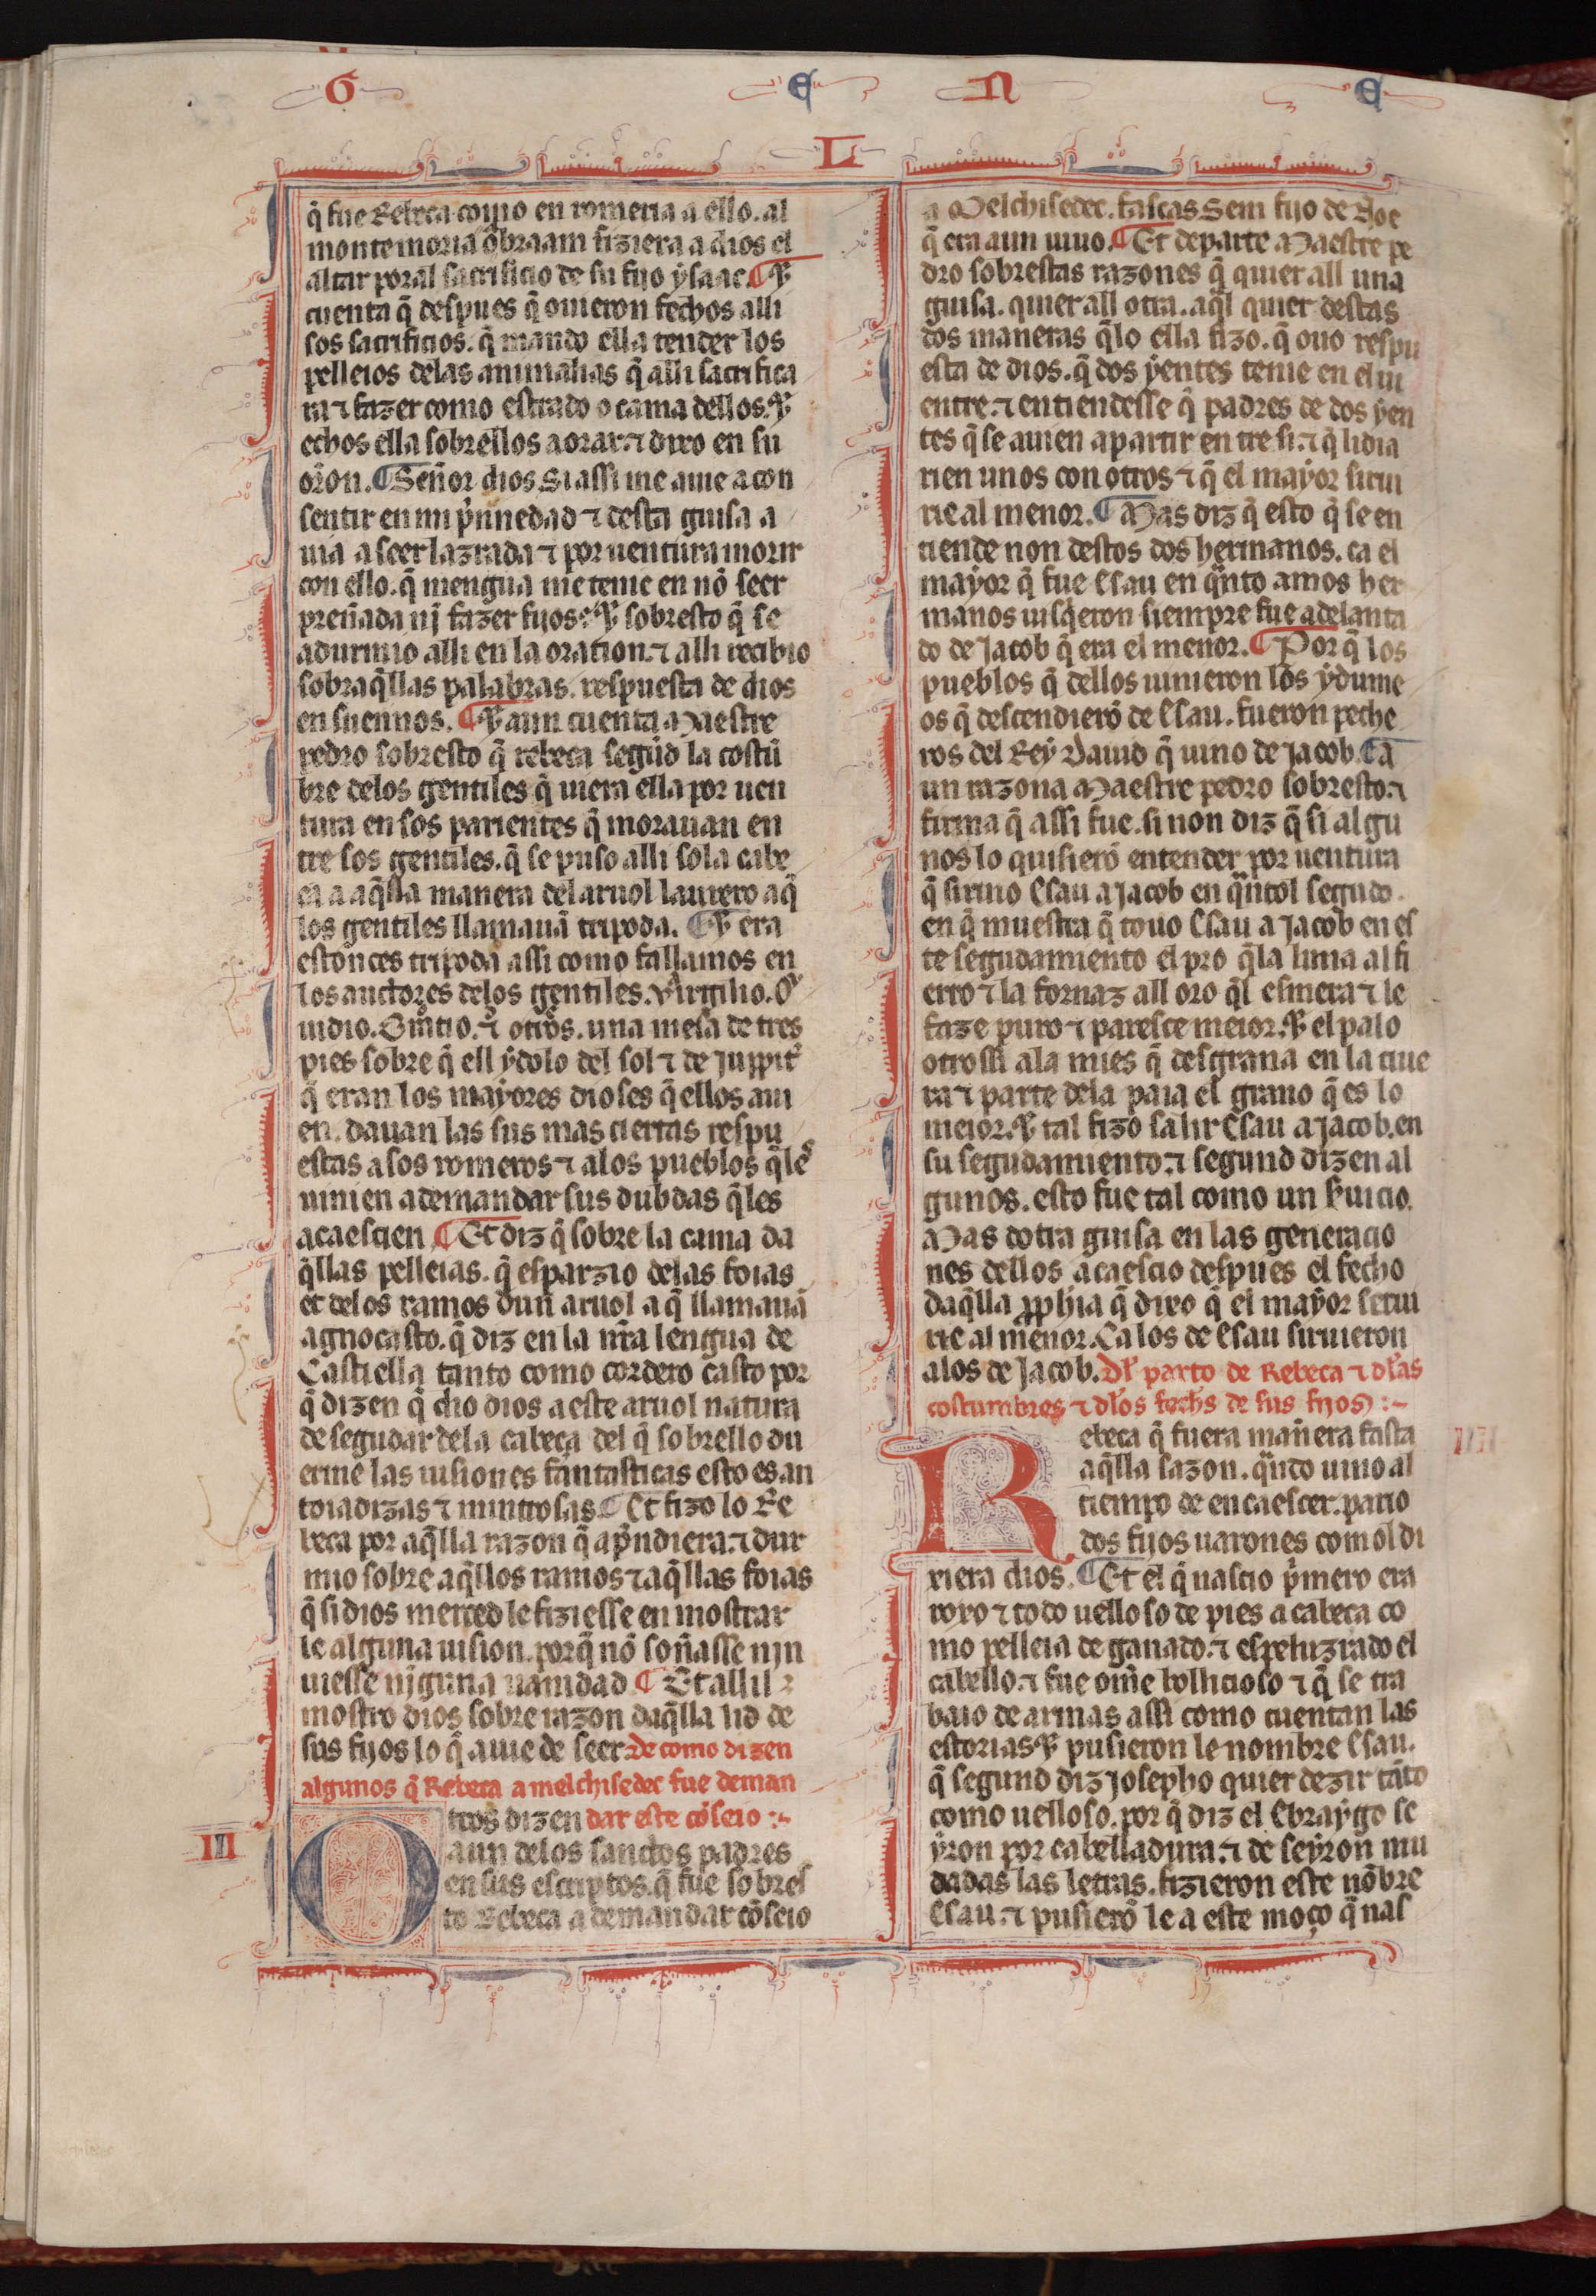 G E N E
L
q̃ fue Rebeca como en romeria a ello. al
monte moria o braam fiziera a dios el
altar poral sacrificio de su fijo ẏsaac. ¶ ⁊
cuenta q̃ despues q̃ ouieron fechos alli
sos sacrificios. q̃ mando ella tender los
pelleios delas animalias q̃ alli sacrifica
ra ⁊ fazer como estrado o cama dellos. ⁊
echos ella sobrellos a orar. ⁊ dixo en su
orõn. ¶ Señor dios. Si assi me auie a con
sentir en mi p̃nnedad ⁊ desta guisa a
uia a seer lazrada ⁊ por uentura morir
con ello. q̃ mengua me tenie en nõ seer
preñada nj̃ fazer fijos? ⁊ sobresto q̃ se
adurmio alli en la oration. ⁊ alli recibio
sobraq̃llas palabras. respuesta de dios
en suennos. ¶ ⁊ aun cuenta Maestre
pedro sobresto q̃ rebeca segũd la costũ
bre delos gentiles q̃ uiera ella por uen
tura en sos parientes q̃ morauan en
tre sos gentiles. q̃ se puso alli sola cabe
ça a aq̃lla manera del aruol laurero aq̃
los gentiles llamauã tripoda. ¶ ⁊ era
estonces tripoda assi como fallamos en
los auctores delos gentiles. Virgilio. O
uidio. Oratio. ⁊ otros. una mesa de tres
pies sobre q̃ ell ẏdolo del sol ⁊ de Juppit̃
q̃ eran los mayores dioses q̃ ellos aui
en. dauan las sus mas ciertas respu
estas a sos romeros ⁊ alos pueblos q̃ les
uinien a demandar sus dubdas q̃ les
acaescien. ¶ Et diz q̃ sobre la cama da
q̃llas pelleias. q̃ esparzio delas foias
et delos ramos dun aruol a q̃ llamauã
agnocasto. q̃ diz en la nr̃a lengua de
Castiella tanto como cordero casto por
q̃ dizen q̃ dio dios a este aruol natura
de segudar dela cabeça del q̃ sobrello du
erme las uisiones fantasticas esto es an
toiadizas ⁊ mintrosas. ¶ Et fizo lo Re
beca por aq̃lla razon q̃ ap̃ndiera. ⁊ dur
mio sobre aq̃llos ramos ⁊ aq̃llas foias
q̃ si dios merced le fiziesse en mostrar
le alguna uision. porq̃ nõ soñasse nin
uiesse nj̃guna uanidad. ¶ Et alli l
mostro dios sobre razon daq̃lla lid de
sus fijos lo q̃ auie de seer. De como dizen
algunos q̃ Rebeca a melchisedec fue deman
dar este cõseio :-
III
Otros dizen
aun delos sanctos padres
en sus escriptos. q̃ fue sobres
to Rebeca a demandar cõseio
a Melchisedec. fascas Sem fijo de Noe
q̃ era aun uiuo. ¶ Et departe Maestre pe
dro sobrestas razones q̃ quier all una
guisa. quier all otra. aq̃l quier destas
dos maneras q̃lo ella fizo. q̃ ouo respu
esta de dios. q̃ dos ẏentes tenie en el ui
entre. ⁊ entiendesse q̃ padres de dos ẏen
tes q̃ se auien a partir entre si. ⁊ q̃ lidia
rien unos con otros ⁊ q̃ el mayor siruj
rie al menor. ¶ Mas diz q̃ esto q̃ se en
tiende non destos dos hermanos. ca el
mayor q̃ fue Esau en q̃nto amos her
manos uisq̃eron siempre fue adelanta
do de Jacob q̃ era el menor. ¶ Por q̃ los
pueblos q̃ dellos uinieron los ẏdume
os q̃ descendierõ de Esau. fueron peche
ros del Rey Dauid q̃ uino de Jacob. ¶ A
un razona Maestre pedro sobresto. ⁊
firma q̃ assi fue. si non diz q̃ si algu
nos lo quisierõ entender por uentura
q̃ siruio Esau a Jacob en q̃ntol segudo.
en q̃ muestra q̃ touo Esau a Jacob en es
te segudamiento el pro q̃ la lima al fi
erro ⁊ la fornaz all oro q̃l esmera ⁊ le
faze puro ⁊ paresce meior. ⁊ el palo
otrossi ala mies q̃ desgrana en la ciue
ra ⁊ parte dela paia el grano q̃ es lo
meior. ⁊ tal fizo salir Esau a Jacob. en
su segudamiento. ⁊ segund dizen al
gunos. esto fue tal como un Iuicio.
Mas dotra guisa en las generacio
nes dellos acaescio despues el fecho
daq̃lla pphia q̃ dixo q̃ el mayor serui
rie al menor. Ca los de Esau siruieron
alos de Jacob. Dl̃ parto de Rebeca ⁊ dl̃as
costumbres ⁊ dl̃os fechs de sus fijos :-
IIII
Rebeca q̃ fuera mañera fasta
aq̃lla sazon. q̃ndo uino al
tiempo de encaescer. pario
dos fijos uarones comol di
xiera dios. ¶ Et el q̃ nascio p̃mero era
roxo ⁊ todo uelloso de pies a cabeça co
mo pelleia de ganado. ⁊ espeluzrado el
cabello. ⁊ fue om̃e bollicioso ⁊ q̃ se tra
baio de armas assi como cuentan las
estorias. ⁊ pusieron le nombre Esau.
q̃ segund diz Josepho quier dezir tãto
como uelloso. por q̃ diz el Ebraẏgo se
ẏron por cabelladura. ⁊ de seẏron mu
dadas las letras. fizieron este nõbre
Esau. ⁊ pusierõ le a este moço q̃ nas